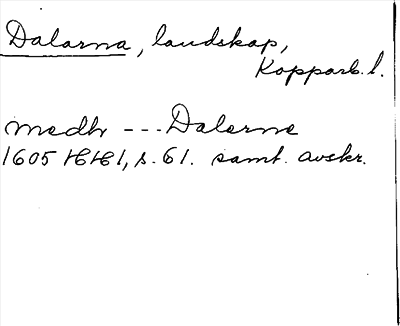 Dalarna, landskap,
Kopparb. l.
medh --- Dalerne
1605 HH 1, s. 61. samt. avskr.